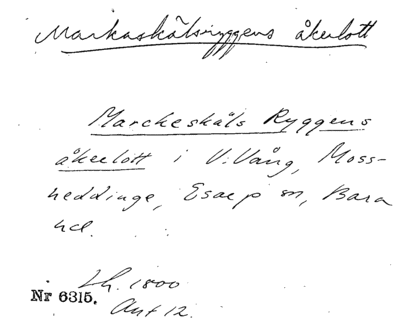 Markaskälsryggens åkerlott
Marckeskäls Ryggens
åkerlott i V. Vång, Moss-
heddinge, Esarp sn, Bara
hd.
Lh. 1800
Nr 6315.
Ant 12.